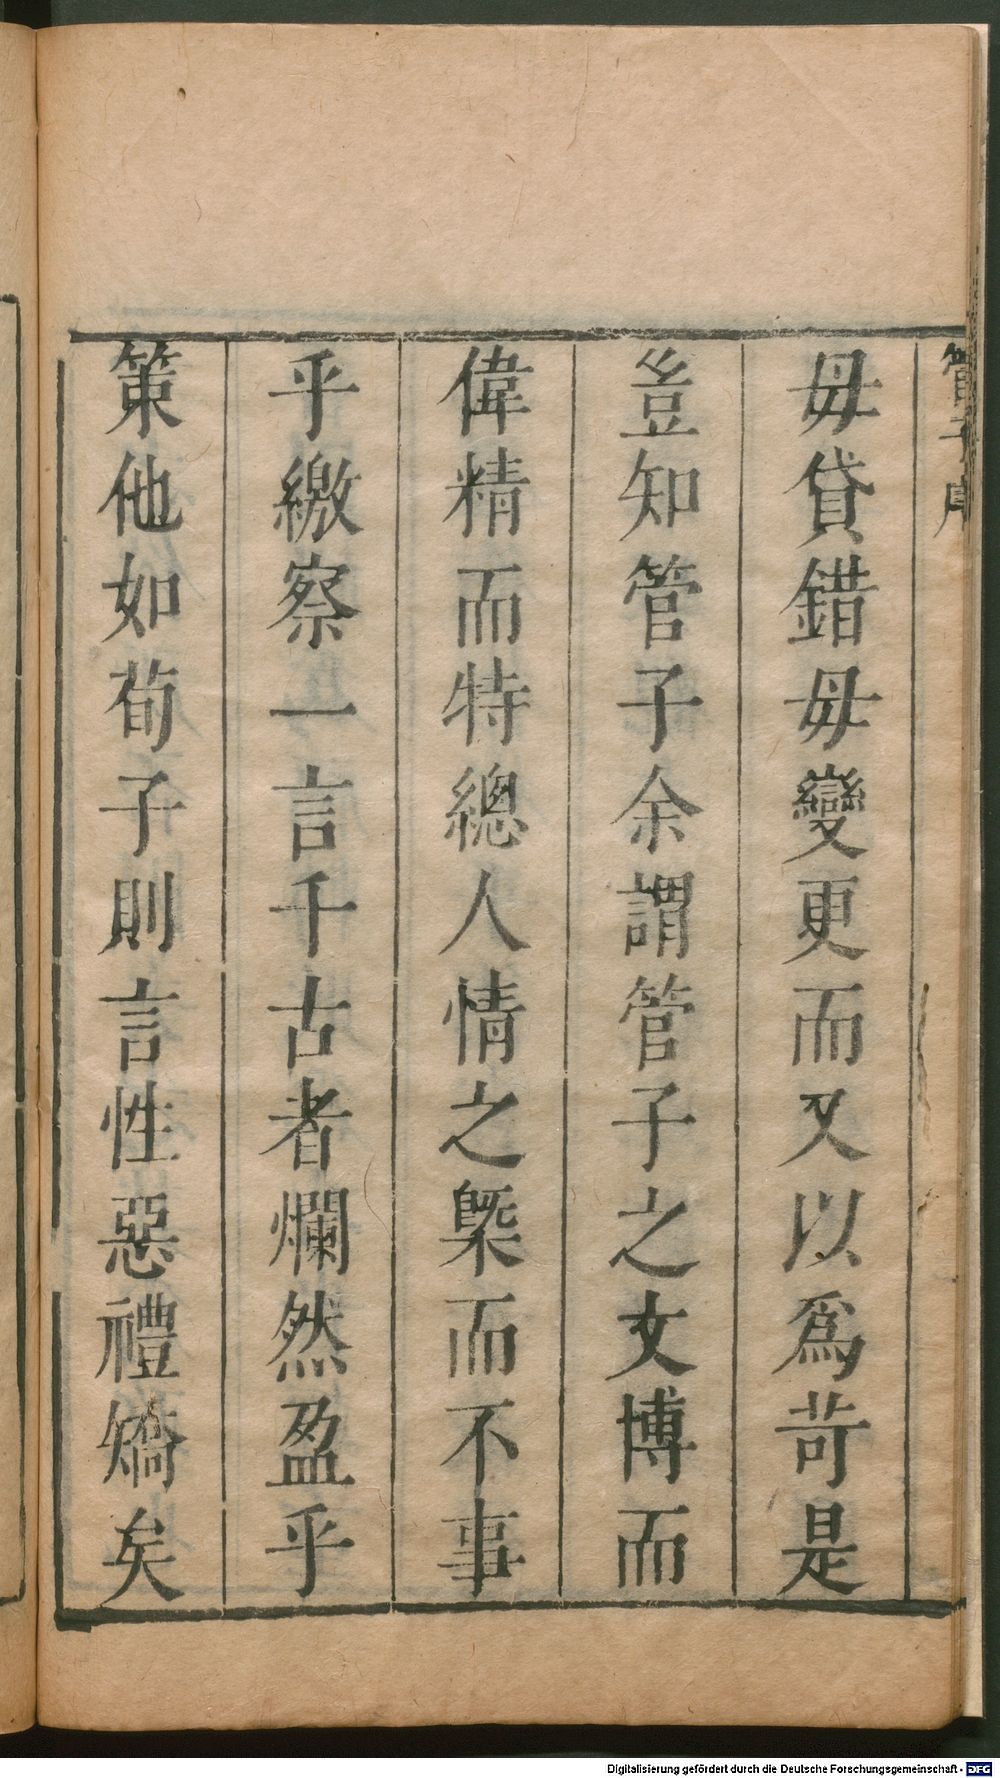 管子序
毋貸錯毋變更而又以爲苛是
豈知管子余謂管子之文博而
偉精而特總人情之槩而不事
乎繳察一言千古者爛然盈乎
策他如荀子則言性惡禮矯矣
Digitalisierung gefördert durch die Deutsche Forschungsgemeinschaft - DFG